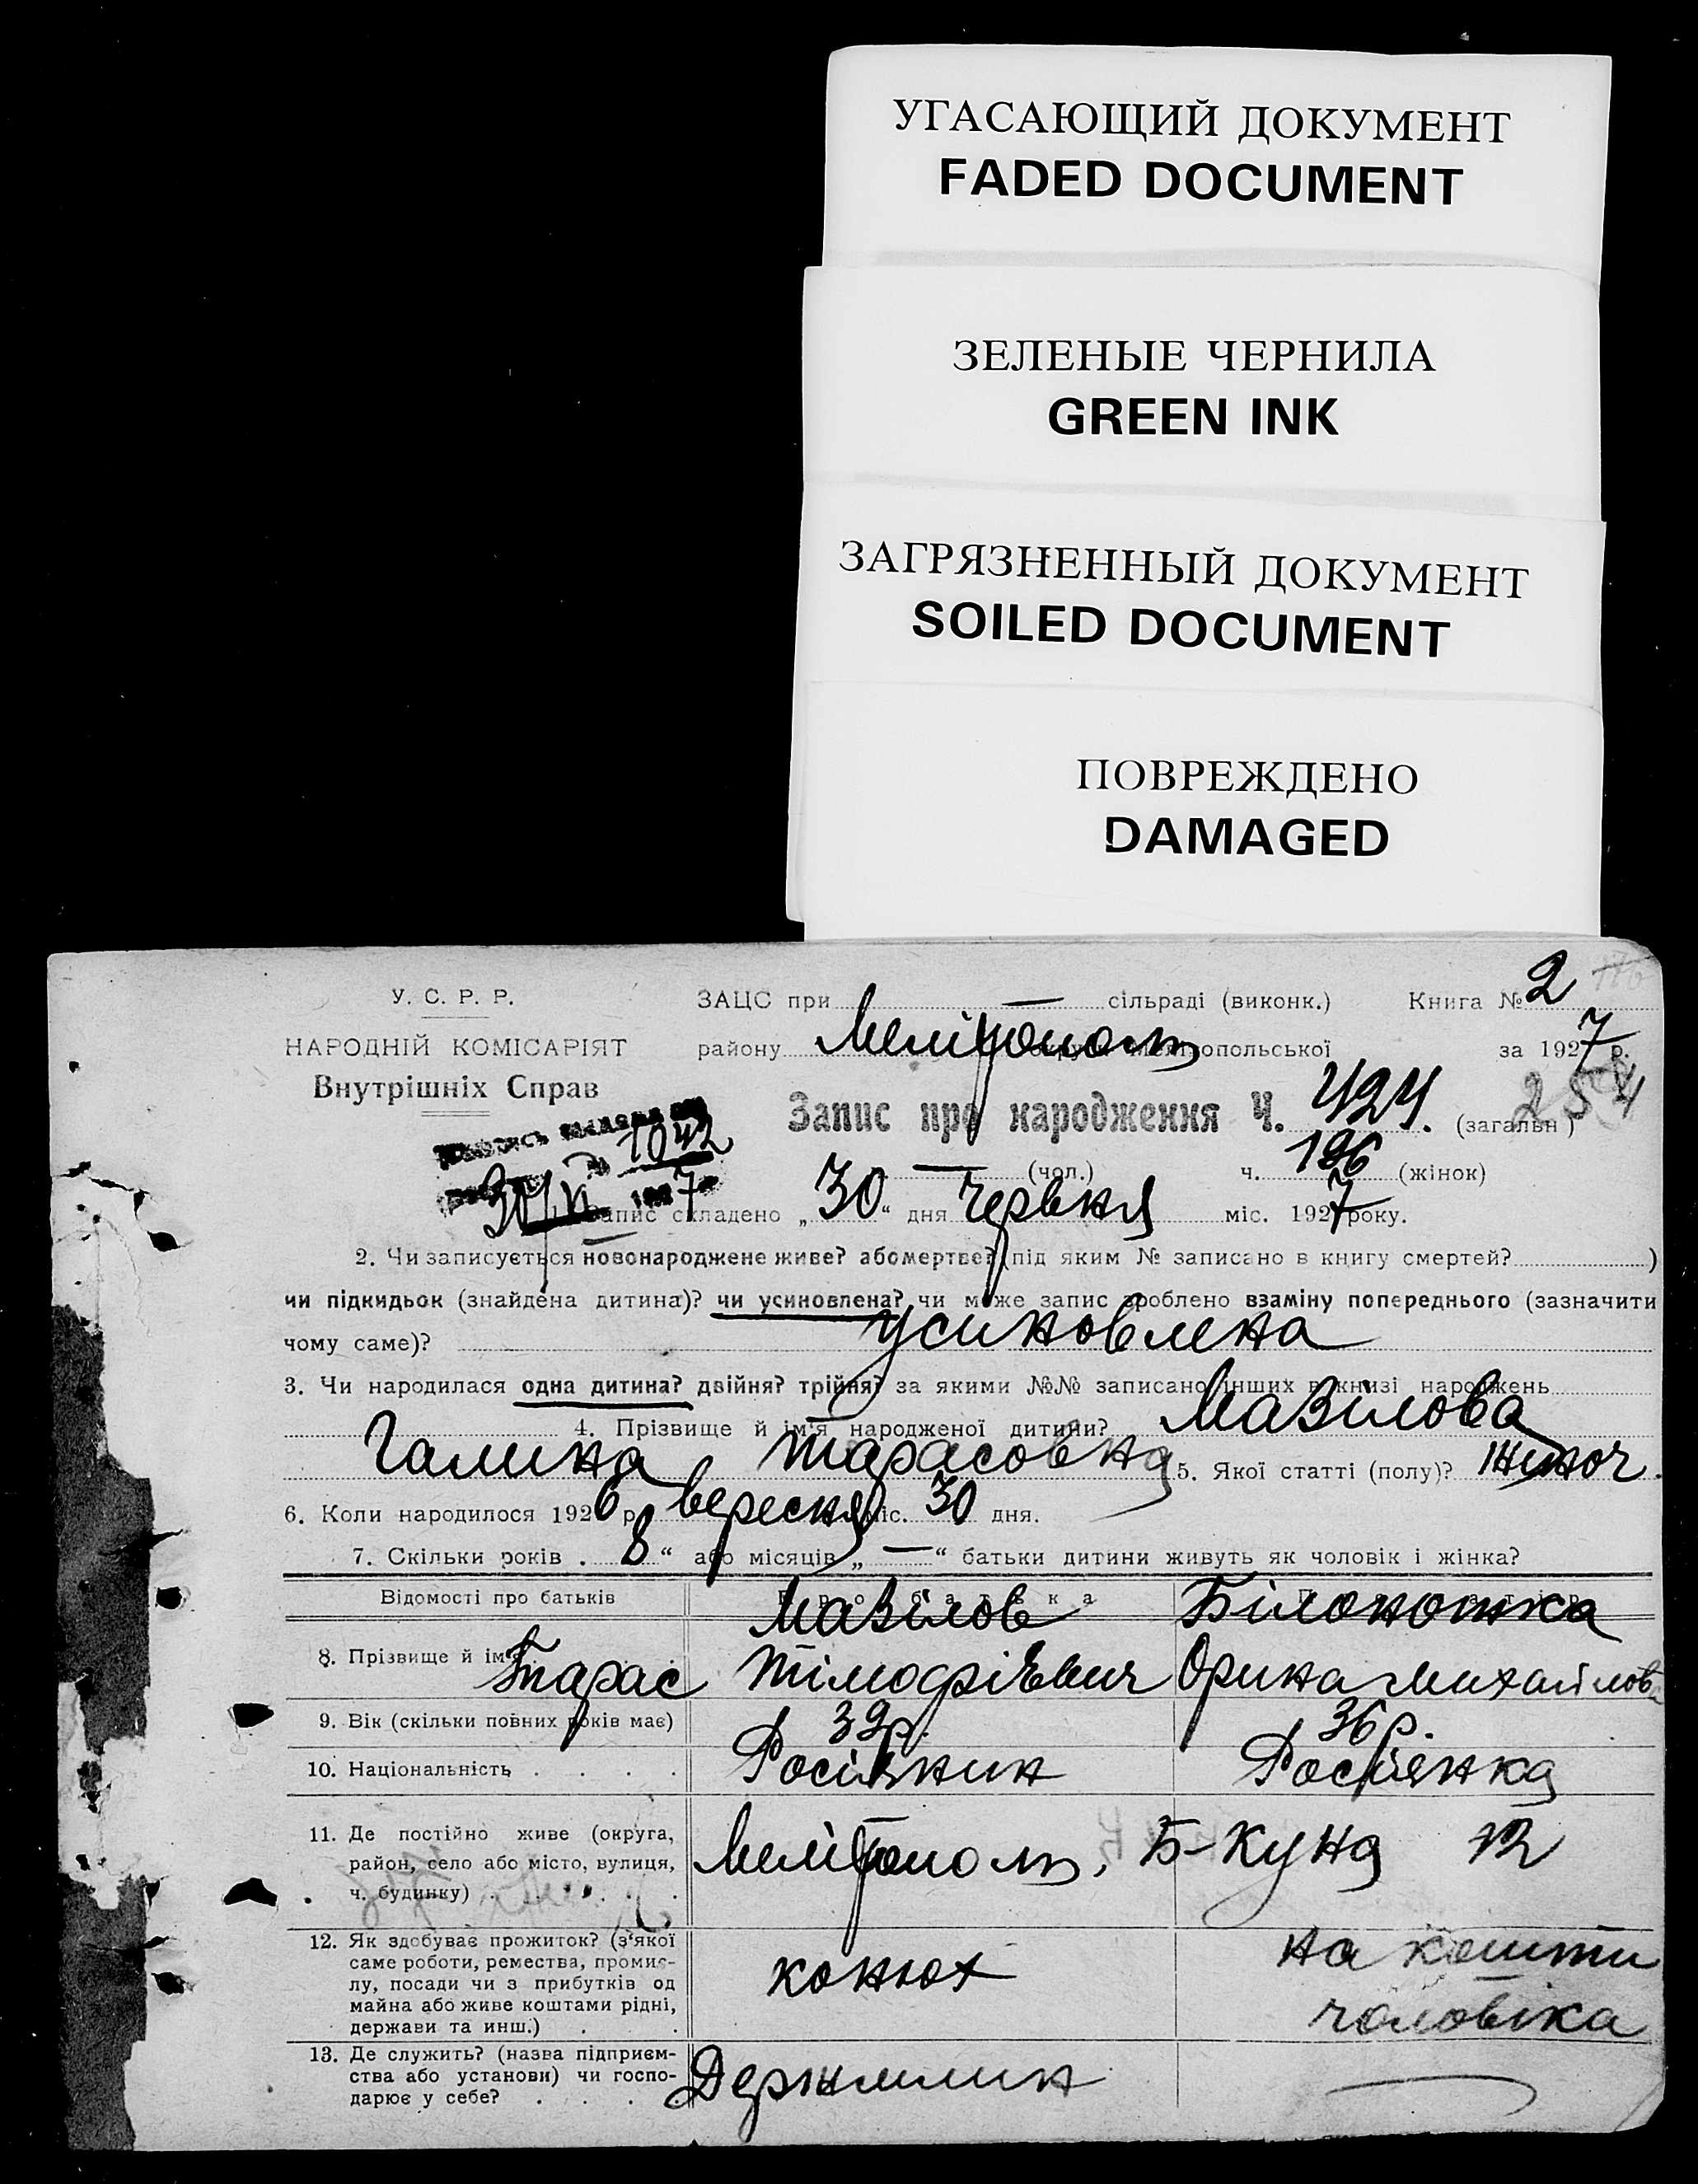 УГАСАЮЩИЙ ДОКУМЕНТ
FADED DOCUMENT
ЗЕЛЕНЫЕ ЧЕРНИЛА
GREEN INK
ЗАГРЯЗНЕННЫЙ ДОКУМЕНТ
SOILED DOCUMENT
ПОВРЕЖДЕНО
DAMAGED
У. С. Р. Р.
НАРОДНІЙ КОМІСАРІЯТ
Внутрішніх Справ
ЗАЦС при — сільраді (виконк.) Книга № 2
району Мелітополь округи Мелітопольської за 1927 р.
Запис про народження Ч. 424. (загальн) 254
1042
— (чол.) ч. 196 (жінок)
30/VI 1927
Запис складено „30“ дня Червня міс. 1927 року.
2. Чи записується новонароджене живе? або мертве? (під яким № записано в книгу смертей? )
чи підкидьок (знайдена дитина)? чи усиновлена? чи може запис зроблено взаміну попереднього (зазначити
чому саме)? Усиновлена
3. Чи народилася одна дитина? двійня? трійня? за якими №№ записано інших в книзі народжень
4. Прізвище й ім'я народженої дитини? Мазілова
Галина Тарасовна 5. Якої статті (полу)? Жіноч.
6. Коли народилося 1926 р. вересня міс. 30 дня.
7. Скільки років „8“ або місяців „—“ батьки дитини живуть як чоловік і жінка?
Відомості про батьків Про батька Про матір
8. Прізвище й ім'я Мазілов Тарас Тімофієвич Білоножка Орина Михайлов
9. Вік (скільки повних років має) 39р. 36р.
10. Національність Росіянин Росіянка
11. Де постійно живе (округа, район, село або місто, вулиця, ч. будинку) Мелітополь, Б-Куна 12
12. Як здобуває прожиток? (з'якої саме роботи, ремества, промислу, посади чи з прибутків од майна або живе коштами рідні, держави та инш.) конюх на кошти чоловіка
13. Де служить? (назва підприємства або установи) чи господарює у себе? Держмлин